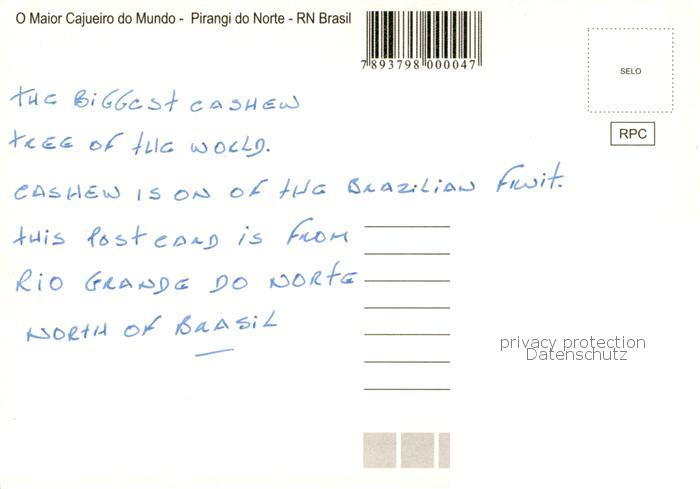 O Maior Cajueiro do Mundo - Pirangi do Norte - RN Brasil
7 893798 000047
SELO
RPC
THE BIGGEST CASHEW
TREE OF THE WORLD.
CASHEW IS ON OF THE BRAZILIAN FRUIT.
THIS POSTCARD IS FROM
RIO GRANDE DO NORTE
NORTH OF BRASIL
privacy protection
Datenschutz